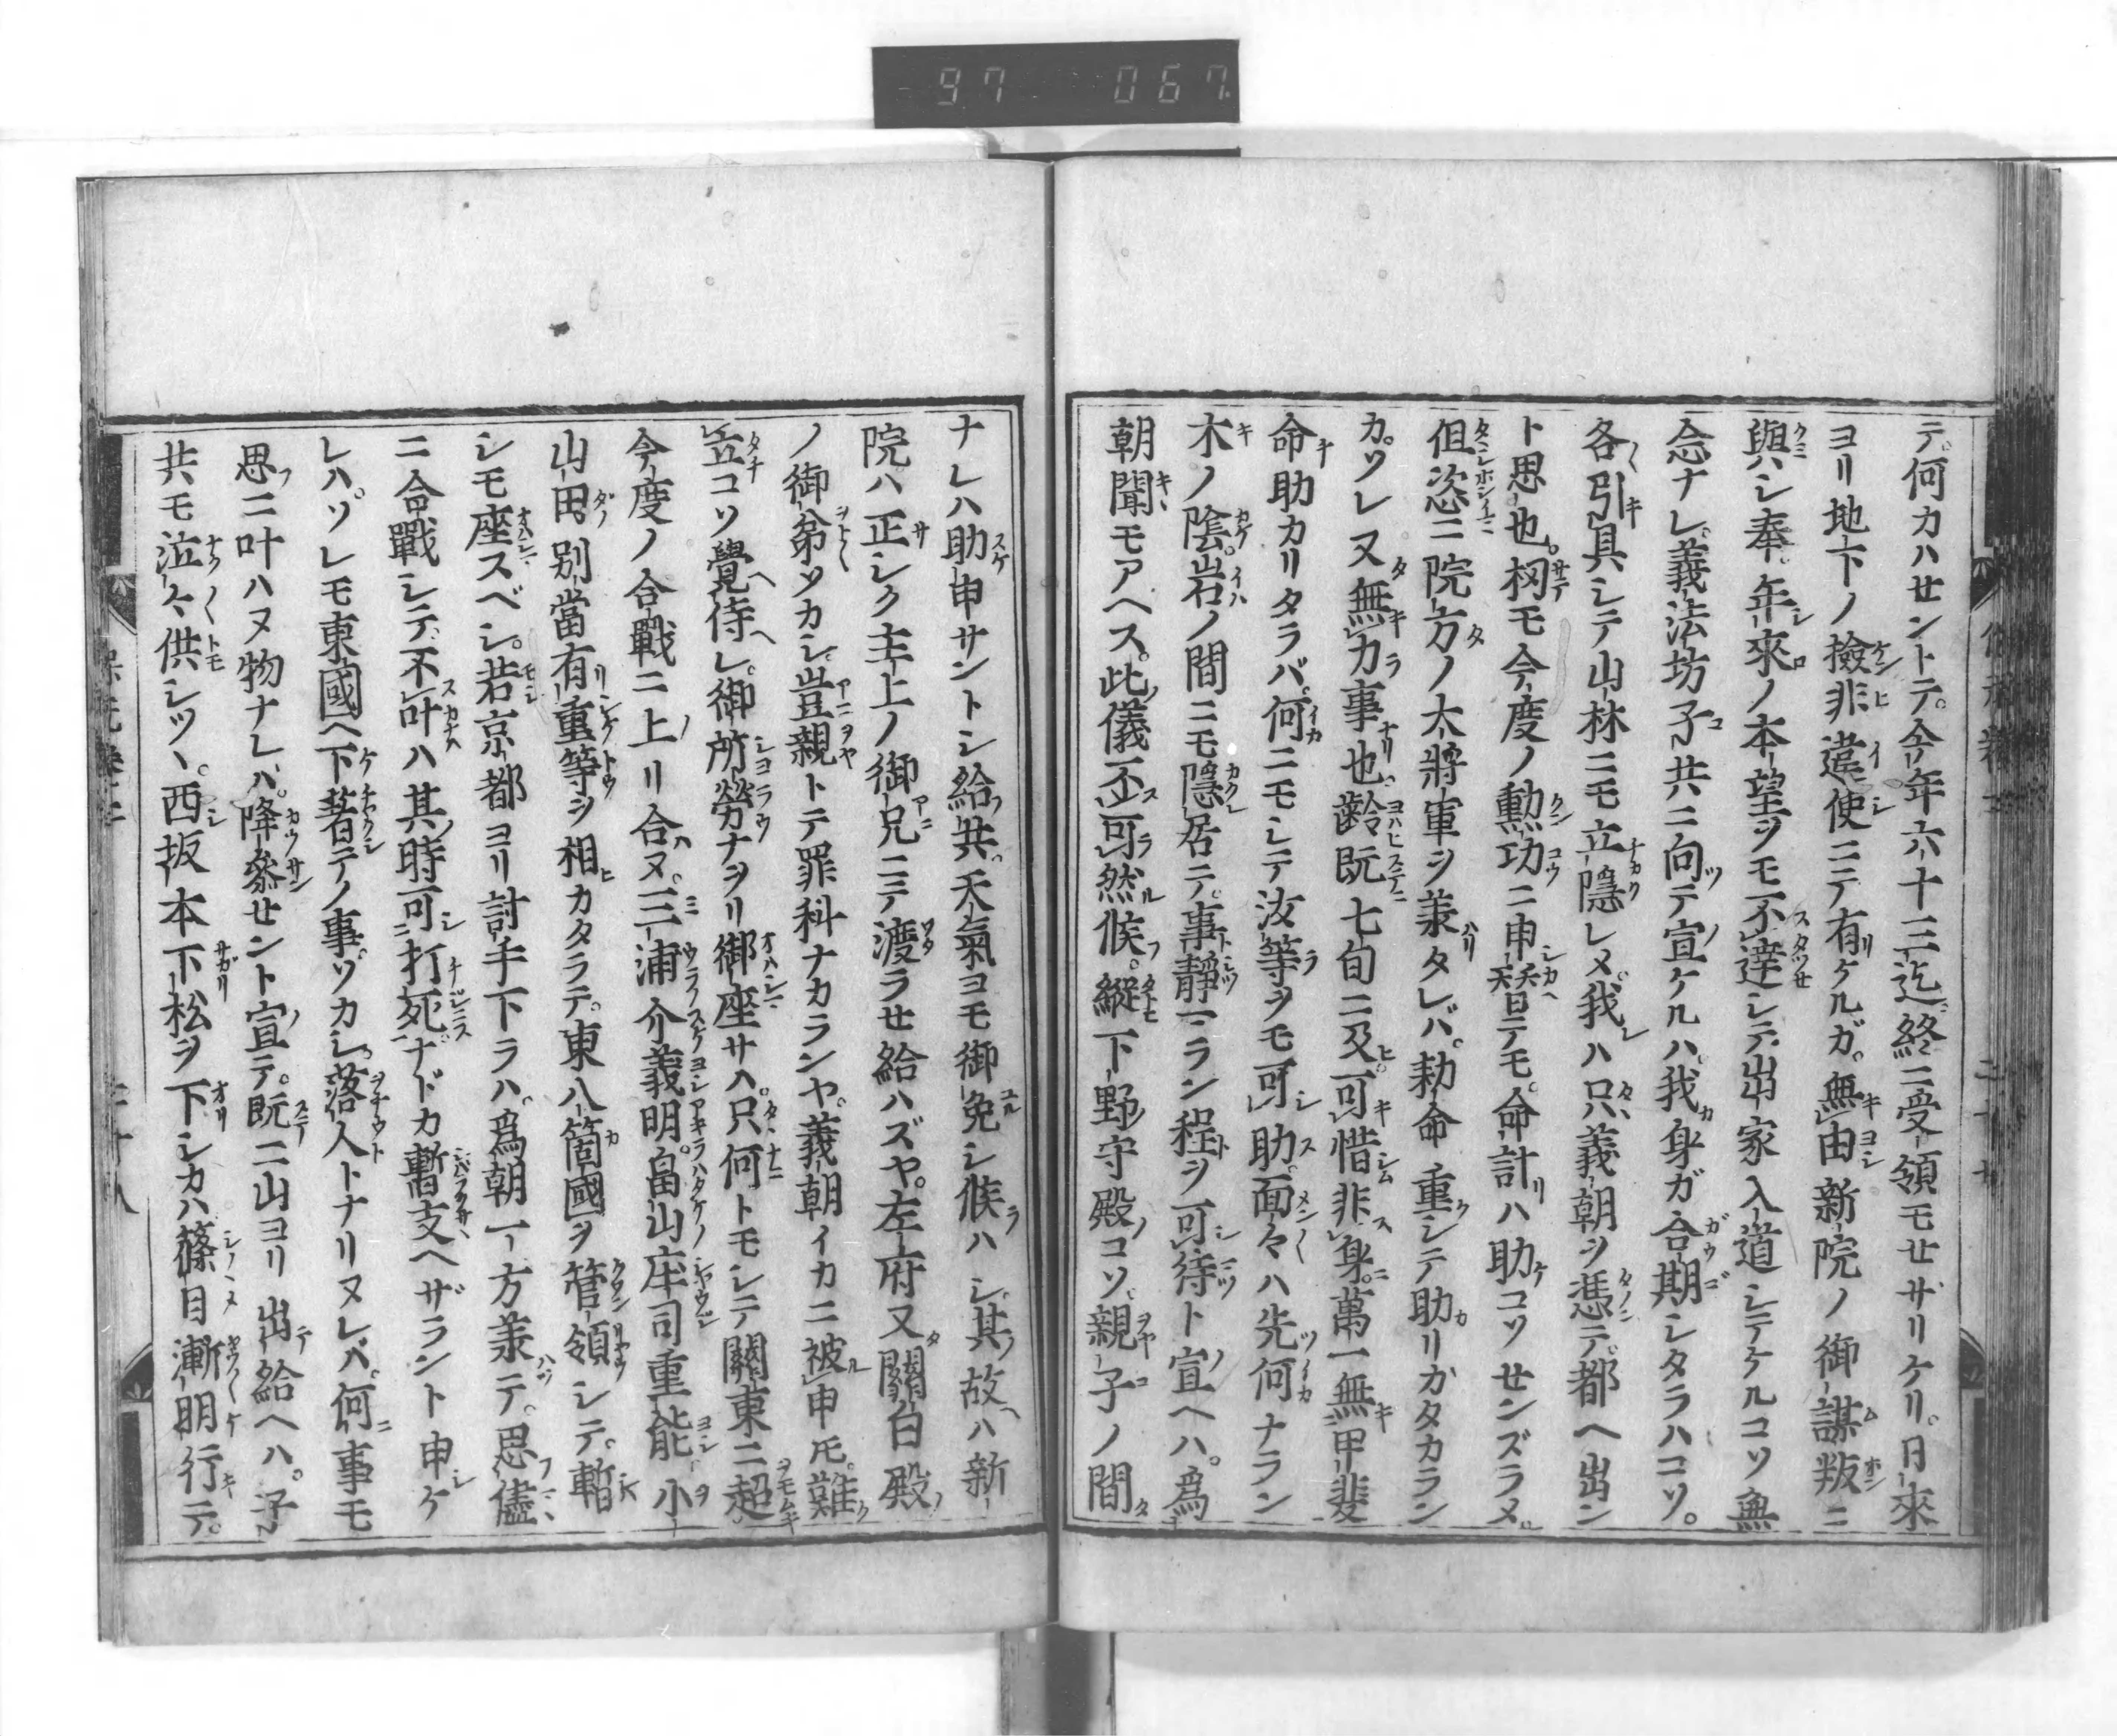 97 067
テ。何カハせントテ。今年六十三迄終ニ受領モせザリケリ。日來
ヨリ地下ノ撿非違使ニテ有ケルガ。無由新院ノ御謀叛ニ
與シ奉。年來ノ本望ヲモ不達シテ出家入道シテケルコソ無
念ナレ。義法坊子共ニ向テ宣ケルハ。我身ガ合期シタラハコソ。
各引具シテ山林ニモ立隱レメ。我ハ只義朝ヲ憑テ。都ヘ出ン
ト思也。扨モ今度ノ勲功ニ申替テモ。命計ハ助コソせンズラメ。
但恣ニ院方ノ大將軍ヲ羕タレバ。勅命重シテ助リカタカラン
カ。ソレ又無力事也。齡既七旬ニ及。可惜非身。萬一無甲斐
命助カリタラバ。何ニモシテ汝等ヲモ可助。面々ハ先何ナラン
木ノ陰。岩ノ間ニモ隱居テ。事靜ラン程ヲ可待ト宣ヘハ。爲
朝聞モアヘス。此儀不可然候。縱下野守殿コソ。親子ノ間
ナレハ助申サントシ給共。天氣ヨモ御免シ候ハシ。其故ハ新
院ハ正シク主上ノ御兄ニテ渡ラせ給ハズヤ。左府又關白殿
ノ御弟ソカシ。豈親トテ罪科ナカランヤ。義朝イカニ被申圧。難
立コソ覺侍レ。御所勞ナヲリ御座サハ。只何トモシテ關東ニ超。
今度ノ合戰ニ上リ合ヌ。三浦介義明。畠山庄司重能。小
山田別當有重等ヲ相カタラテ。東八箇國ヲ管領シテ。暫
シモ座スベシ。若京都ヨリ討手下ラハ。爲朝一方羕テ。思儘
ニ合戰シテ。不叶ハ其時可打死。ナドカ暫支ヘザラント申ケ
レハ。ソレモ東國ヘ下著テノ事ソカシ。落人トナリヌレバ。何事モ
思ニ叶ハヌ物ナレバ。降參せント宣テ。既ニ山ヨリ出給ヘハ。子
共モ泣々供シツヽ。西坂本下松ヲ下シカハ篠目漸明行テ。